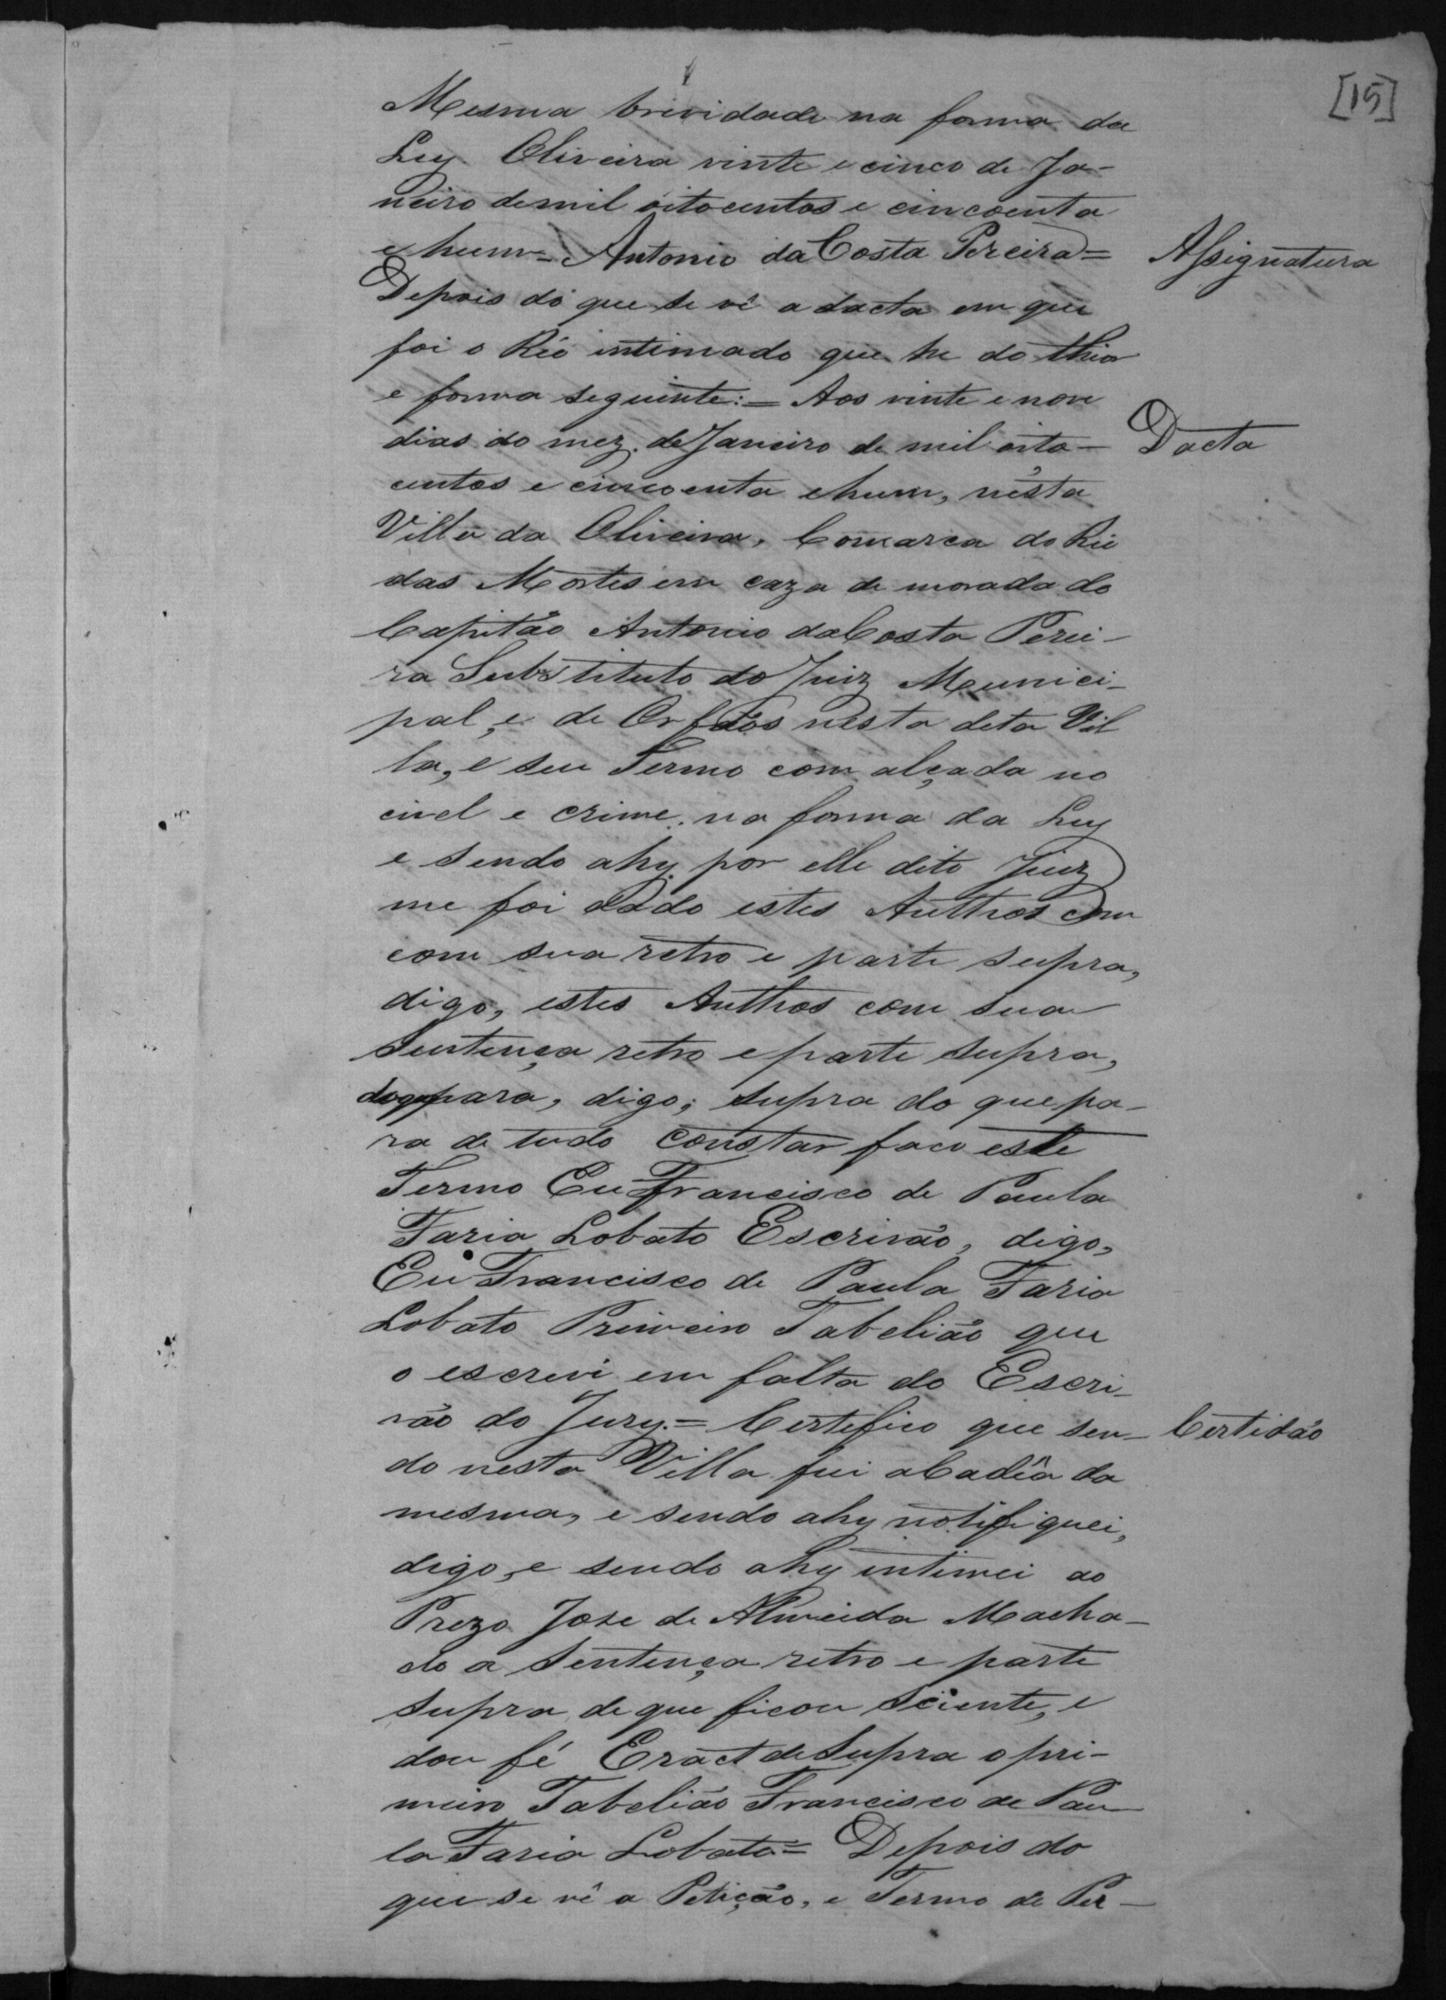 [15]
Mesma brividade na forma da
Ley. Oliveira vinte e cinco de Ja-
neiro de mil oitocentos e cincoenta
e hum = Antonio da Costa Pereira =
Assignatura
Depois do que se vê a dacta em que
foi o Réo intimado que he do thior
e forma seguinte: = Aos vinte e nove
dias do mez de Janeiro de mil oito-
Dacta
centos e cincoenta e hum, nésta
Villa da Oliveira, Comarca do Rio
das Mortes em caza de morada do
Capitão Antonio da Costa Perei-
ra Substituto do Juiz Munici-
pal, e de Orfãos nesta dita Vil
la, e seu Termo com alçada no
civel e crime na forma da Ley
e sendo ahy por elle dito Juiz
me foi dado estes Authos com
com sua retro e parte supra,
digo, estes Authos com sua
Sentença retro e parte supra,
para, digo, supra do que pa-
ra de tudo constar faco este
Termo Eu Francisco de Paula
Faria Lobato Escrivão, digo,
Eu Francisco de Paula Faria
Lobato Primeiro Tabelião que
o escrevi em falta do Escri-
vão do Jury. = Certefico que sen-
Certidão
do nesta Villa fui a Cadêa da
mesma, e sendo ahy notifiquei,
digo, e sendo ahy intimei ao
Prezo Joze de Almeida Macha-
do a Sentença retro e parte
supra de que ficou Sciente, e
dou fé Eract de Supra o pri-
meiro Tabelião Francisco de Pau-
la Faria Lobato = Depois do
que se vê a Petição, e Termo de Per-